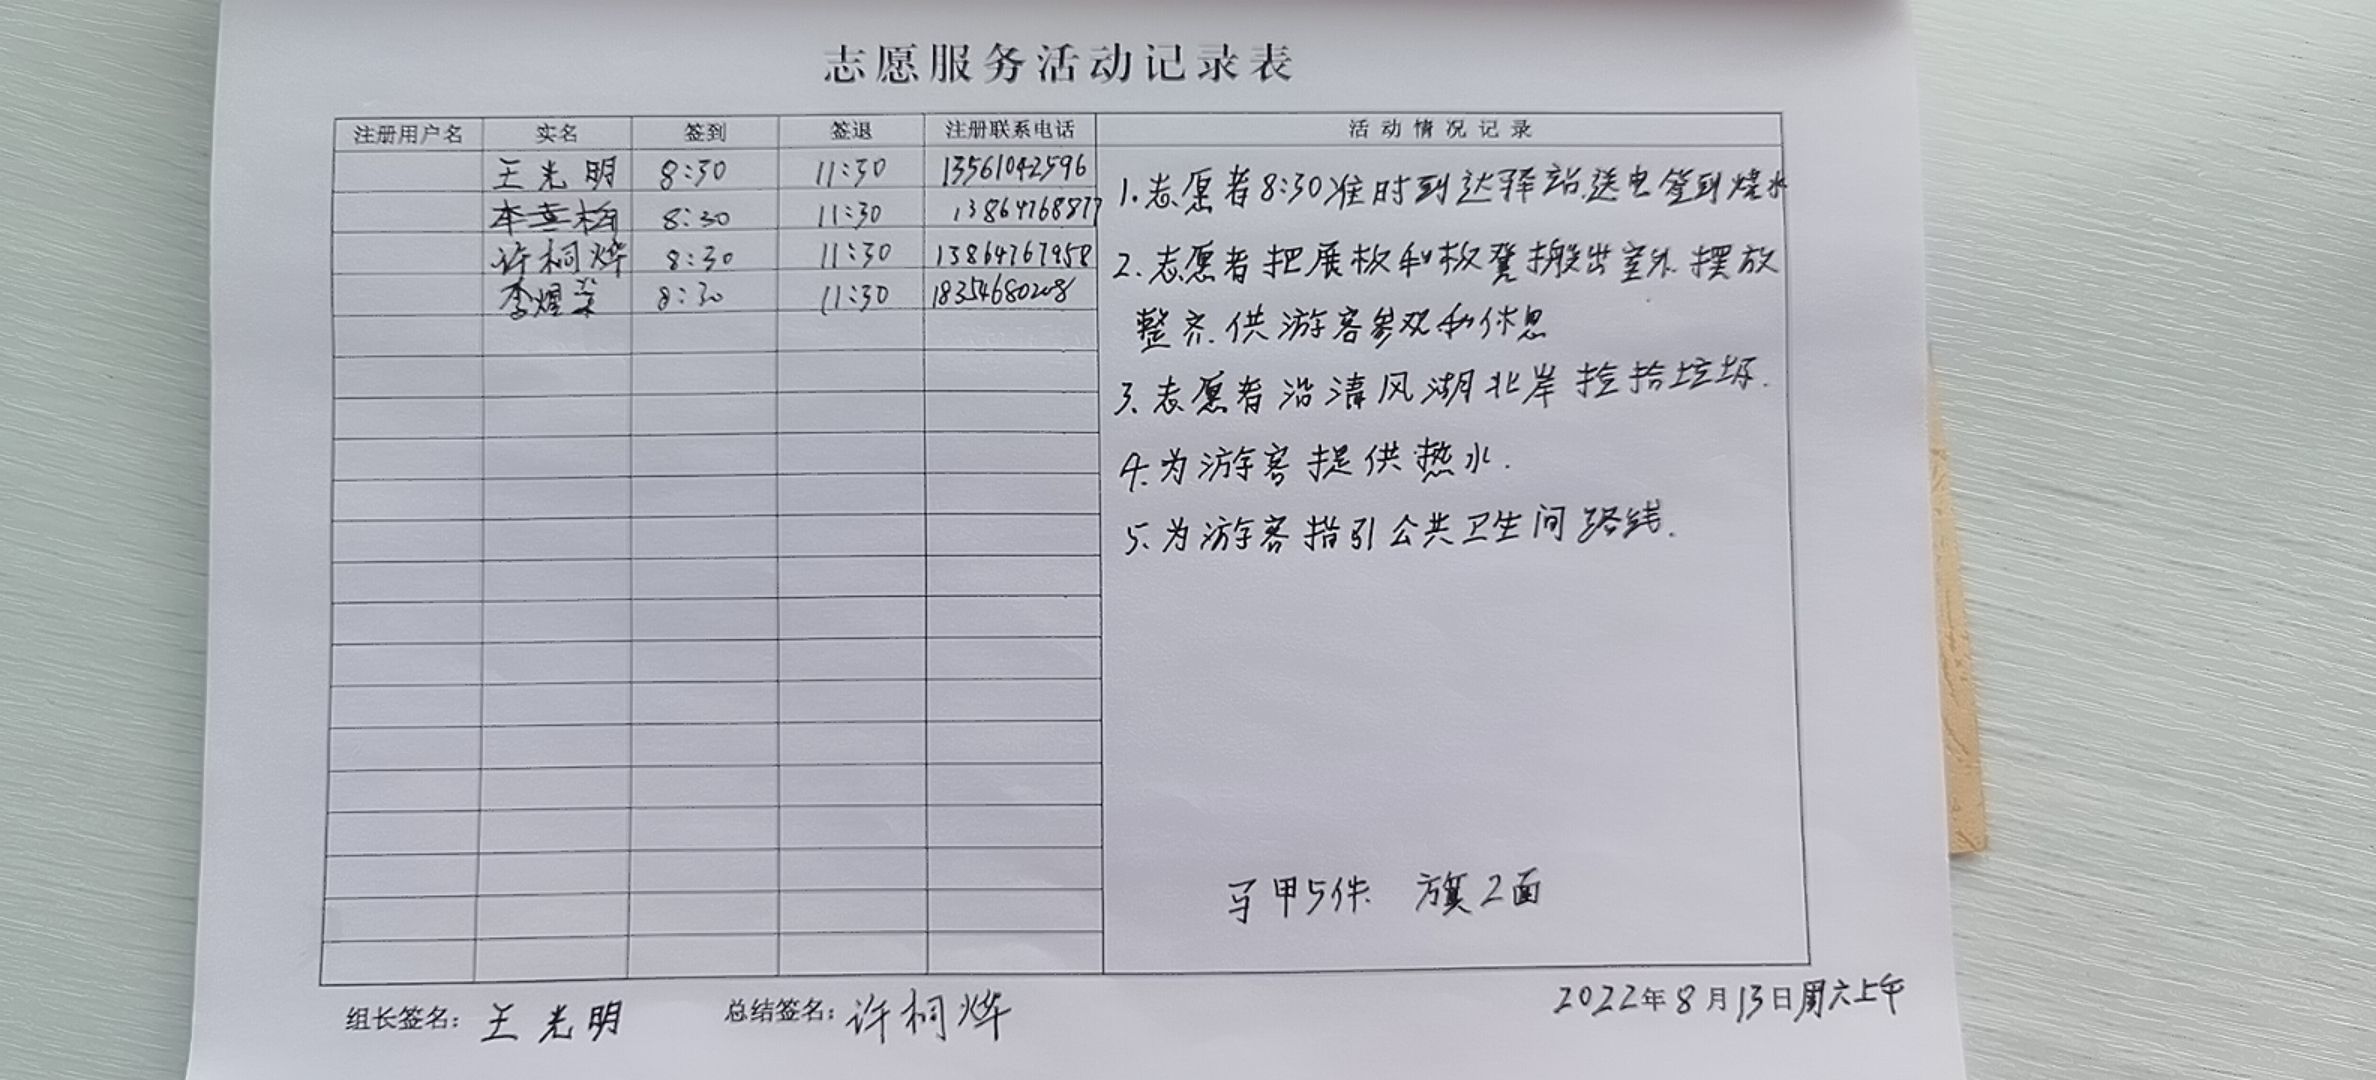 志愿服务活动记录表
注册用户名 实名 签到 签退 注册联系电话 活动情况记录
王光明 8:30 11:30 13561042596
8:30 11:30 13864768877
许桐烨 8:30 11:30 13864767958
李煜 8:30 11:30 18354680208
1.志愿者8:30准时到达驿站.送电签到烧水
2.志愿者把展板和板凳搬出室外.摆放
整齐.供游客参观和休息
3.志愿者沿清风湖北岸捡拾垃圾.
4.为游客提供热水.
5.为游客指引公共卫生间路线.
马甲5件 旗2面
组长签名：王光明 总结签名：许桐烨 2022年8月13日周六上午